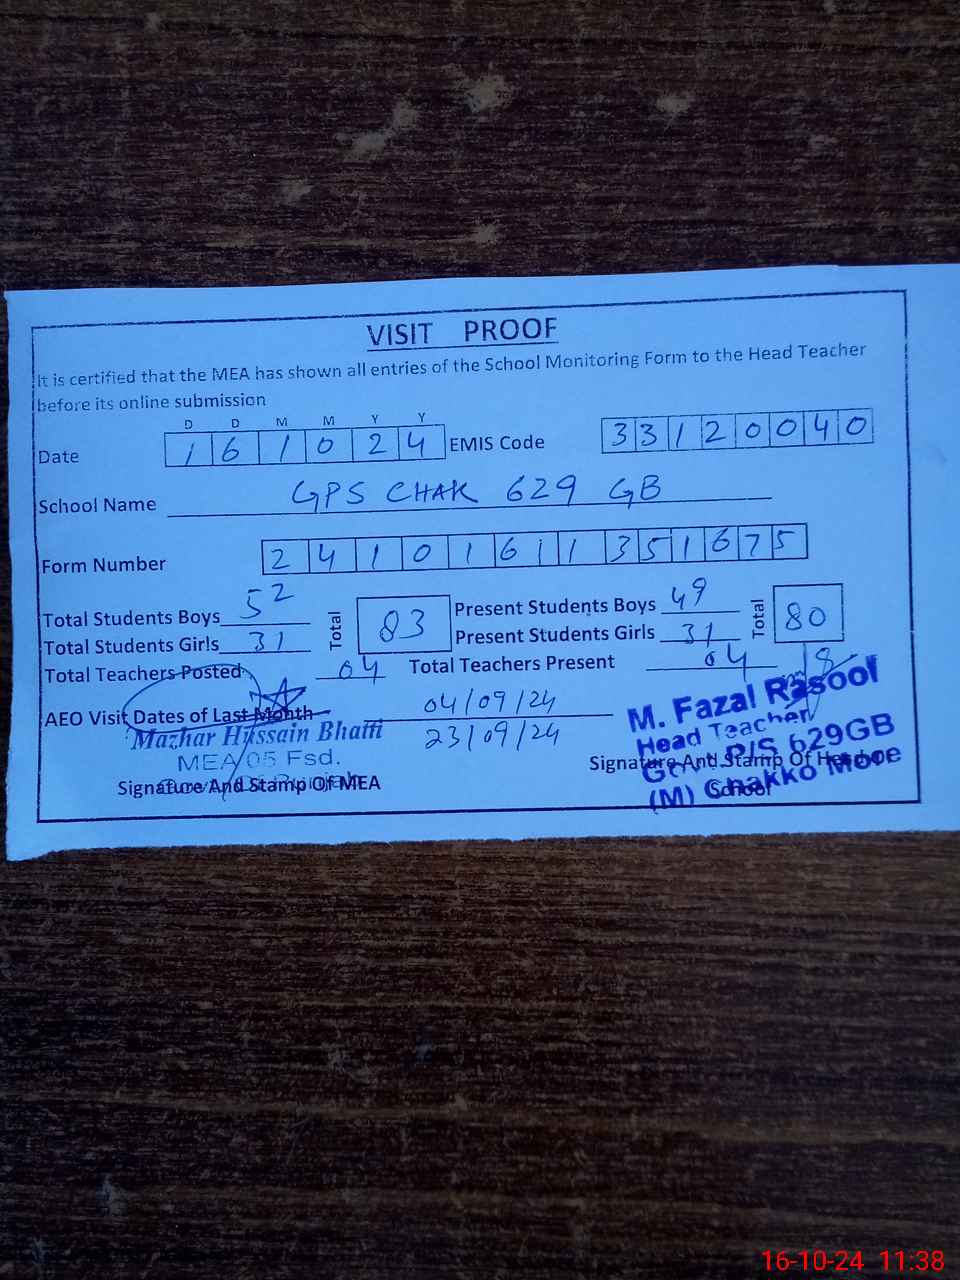 VISIT PROOF
It is certified that the MEA has shown all entries of the School Monitoring Form to the Head Teacher
before its online submission
D D M M Y Y
Date 1 6 1 0 2 4 EMIS Code 3 3 1 2 0 0 4 0
School Name GPS CHAK 629 GB
Form Number 2 4 1 0 1 6 1 1 3 5 1 6 7 5
Total Students Boys 52 Total 83 Present Students Boys 49 Total 80
Total Students Girls 31 Present Students Girls 31
Total Teachers Posted 04 Total Teachers Present 04
AEO Visit Dates of Last Month 04/09/24
23/09/24
Mazhar Hussain Bhatti
MEA/05 Fsd.
Signature And Stamp Of MEA
M. Fazal Rasool
Head Teacher
Govt. P/S 629GB
(M) Chakko More
Signature And Stamp Of Head Of
School
16-10-24 11:38